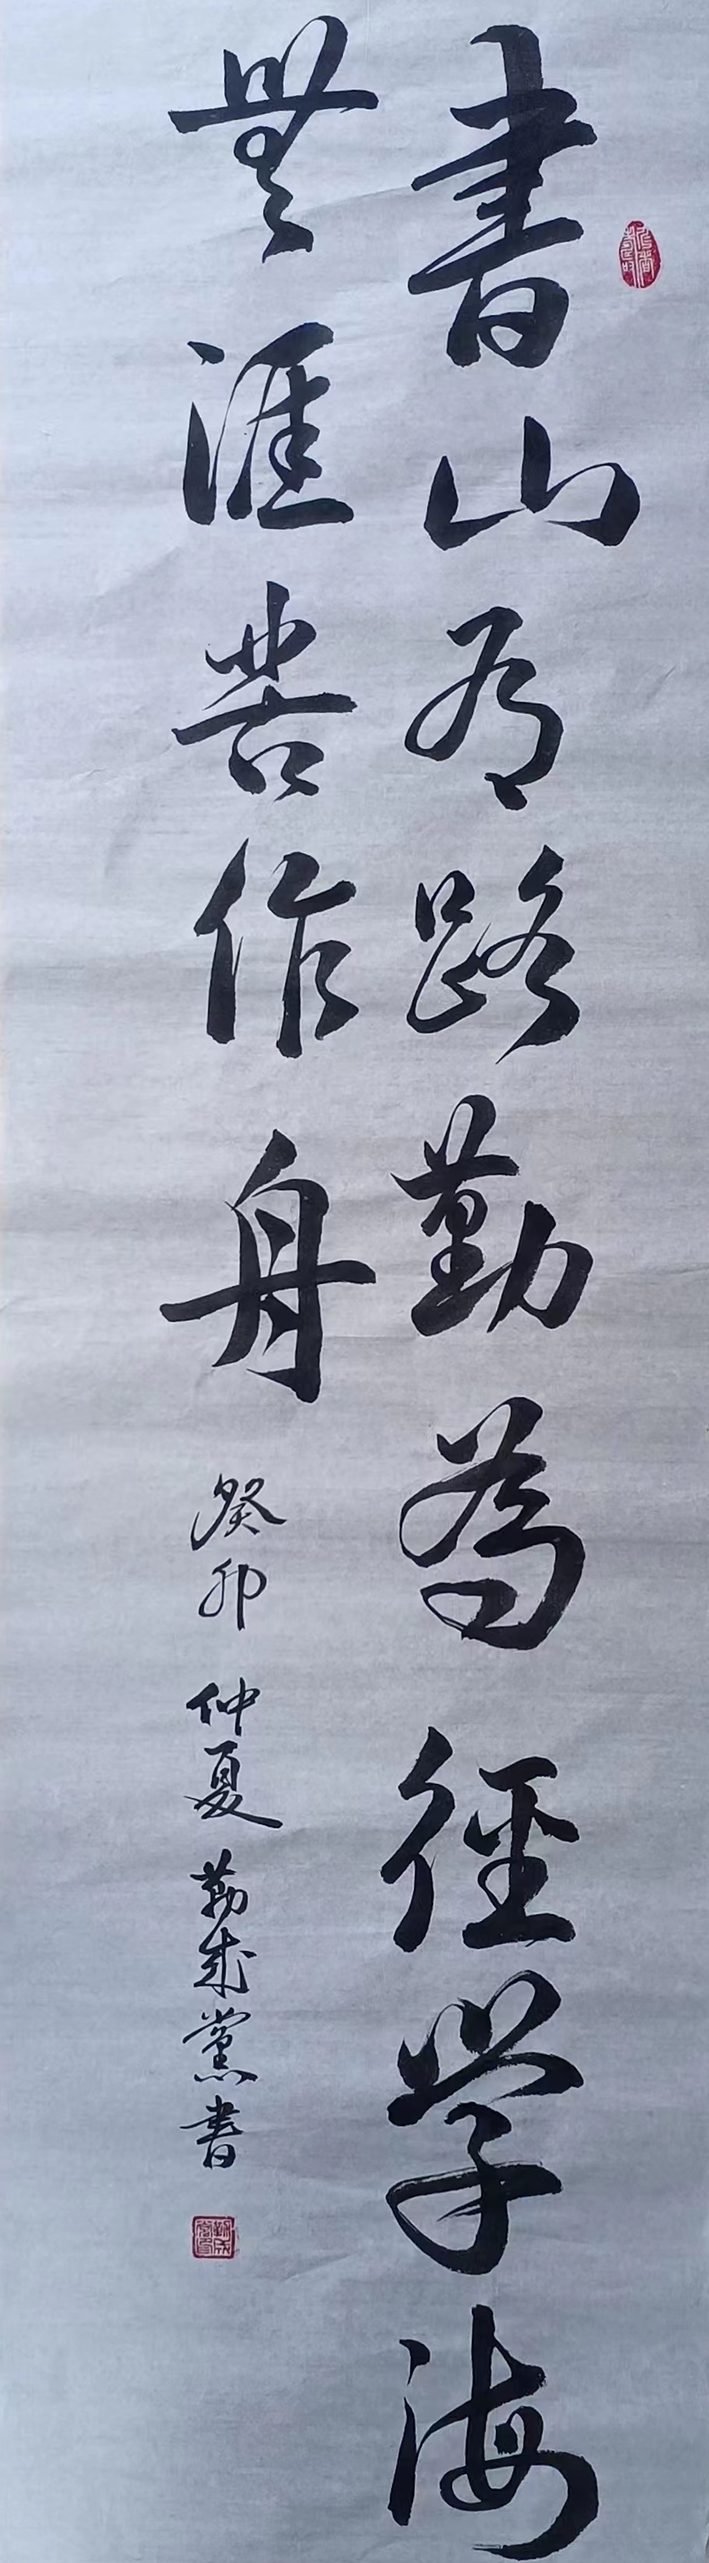 書山有路勤為徑學海
無涯苦作舟
癸卯仲夏勤成黨書